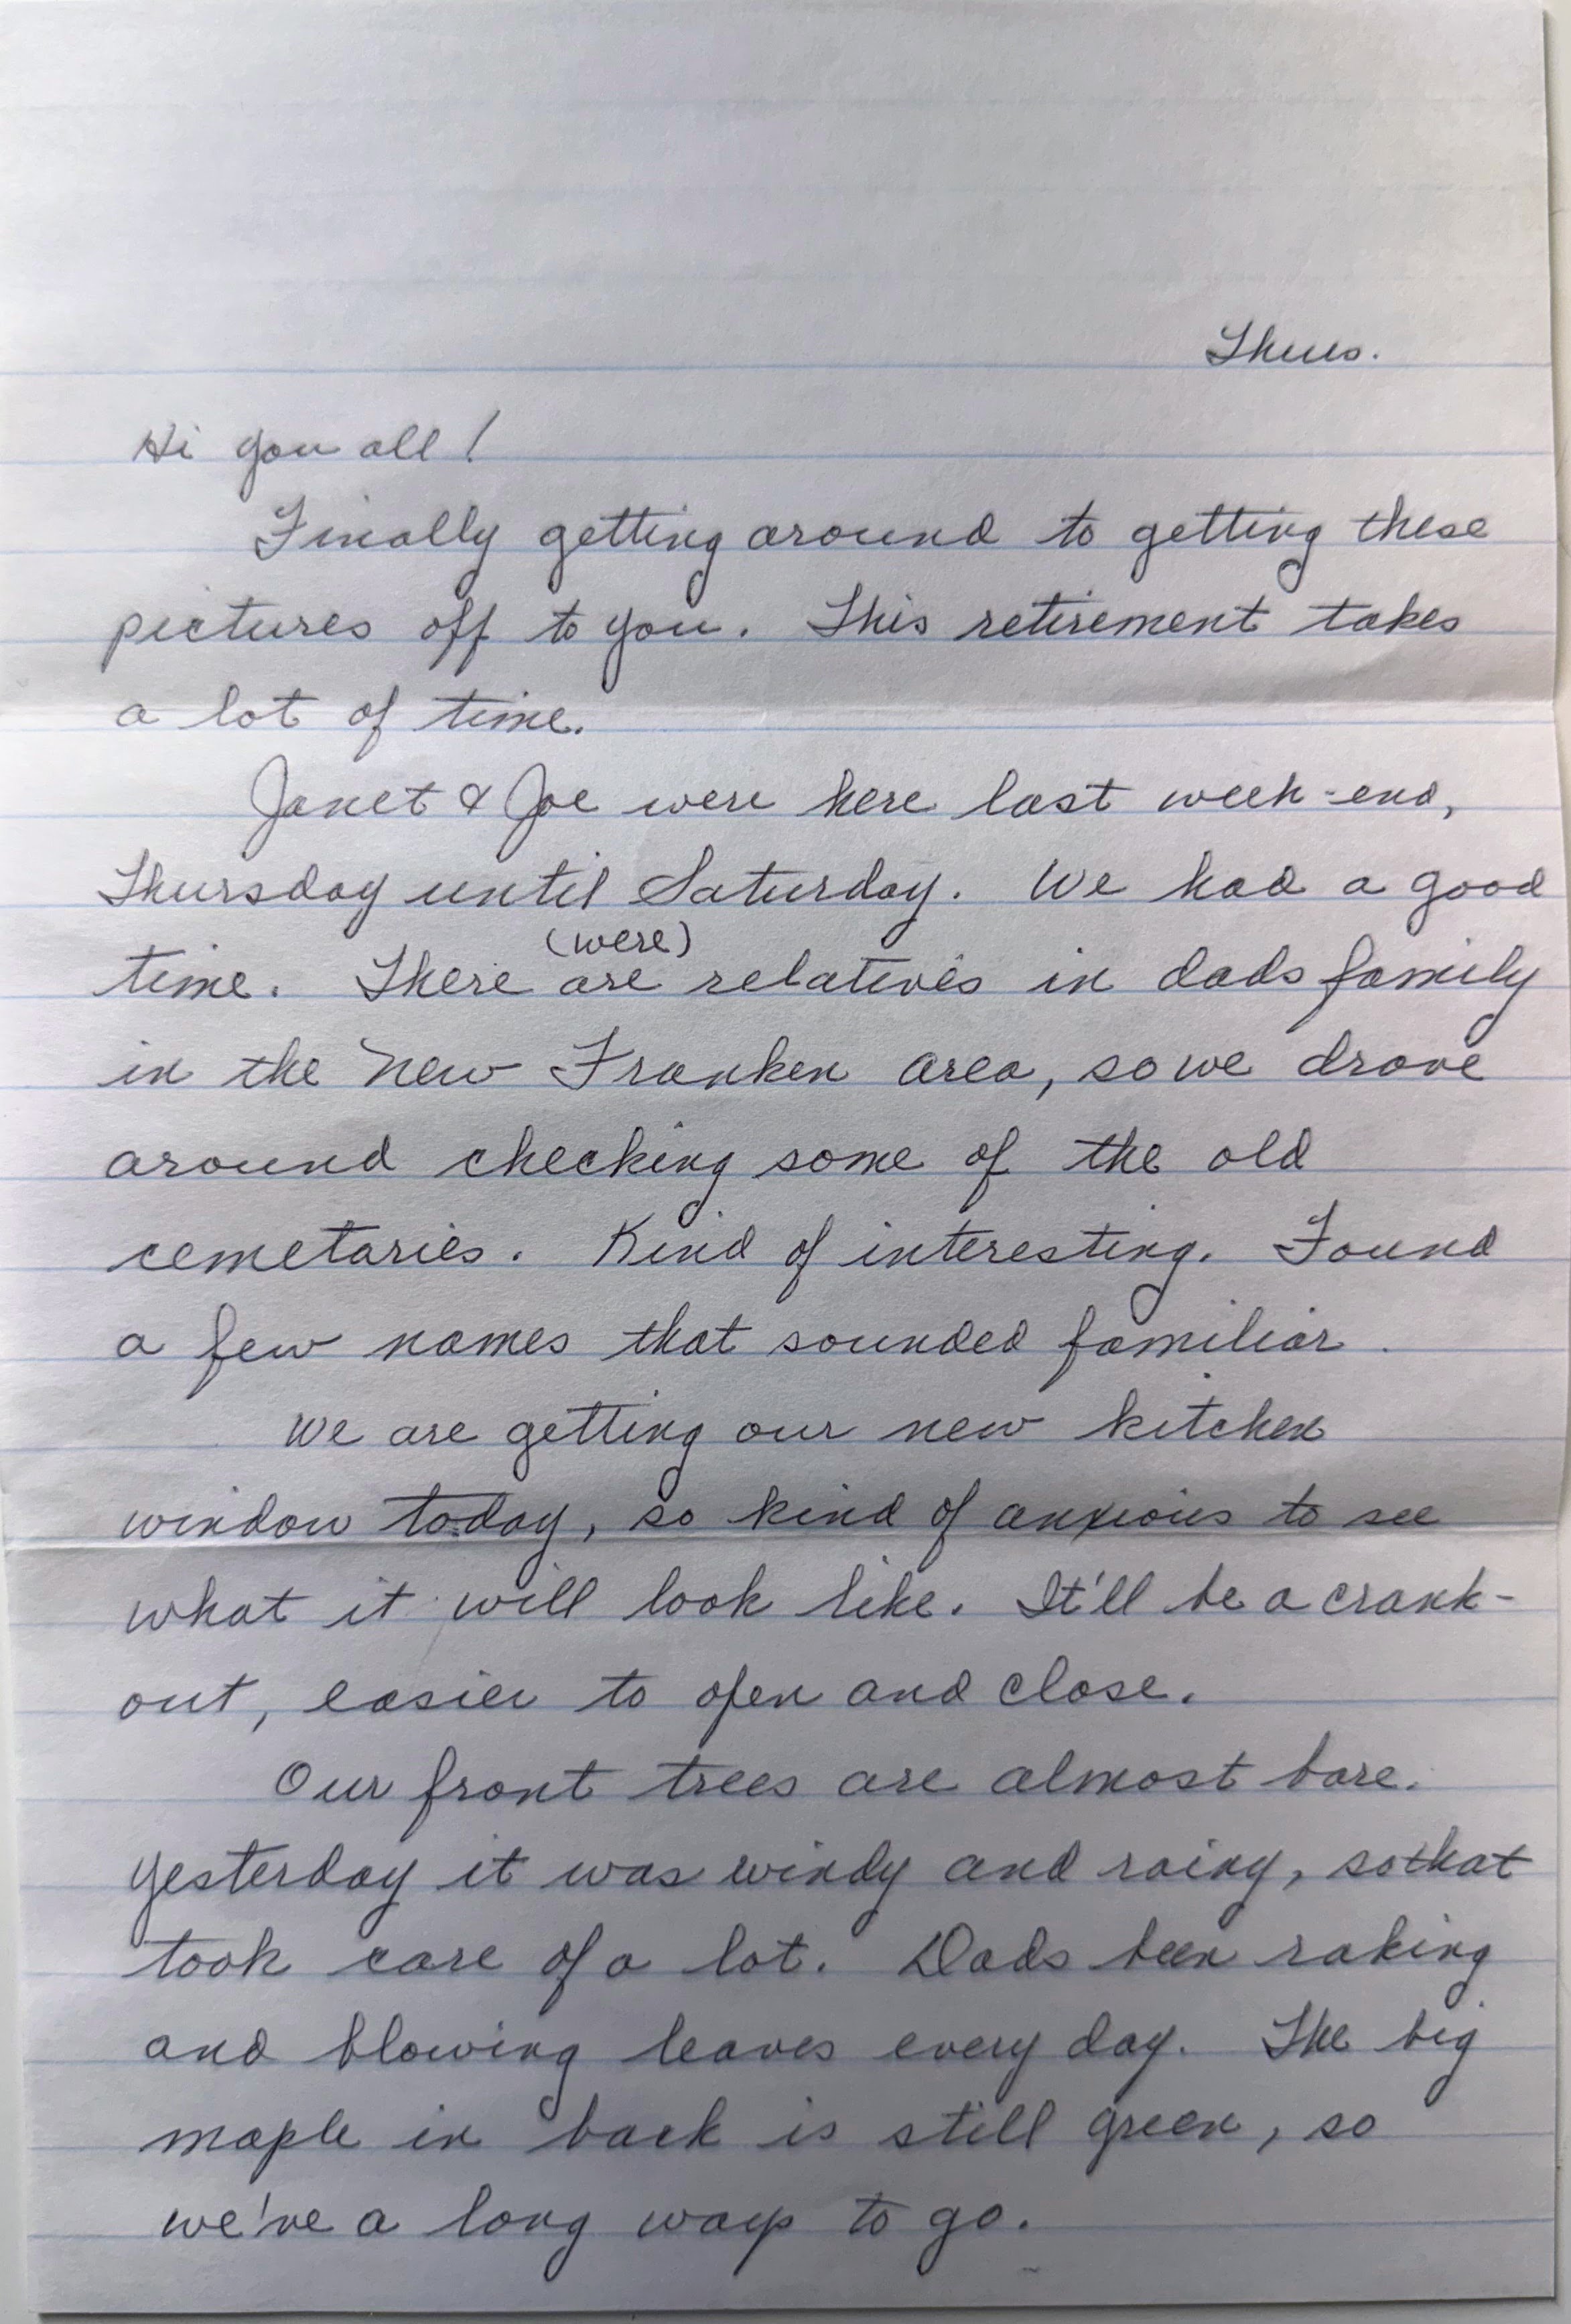 Thurs.
Hi you all!
Finally getting around to getting these
pictures off to you. This retirement takes
a lot of time.
Janet & Joe were here last week-end,
Thursday until Saturday. We had a good
(were)
time. There are relatives in dads family
in the New Franken area, so we drove
around checking some of the old
cemetaries. Kind of interesting. Found
a few names that sounded familiar.
We are getting our new kitchen
window today, so kind of anxious to see
what it will look like. It'll be a crank-
out, easier to open and close.
Our front trees are almost bare.
Yesterday it was windy and rainy, so that
took care of a lot. Dads been raking
and blowing leaves every day. The big
maple in back is still green, so
we've a long ways to go.